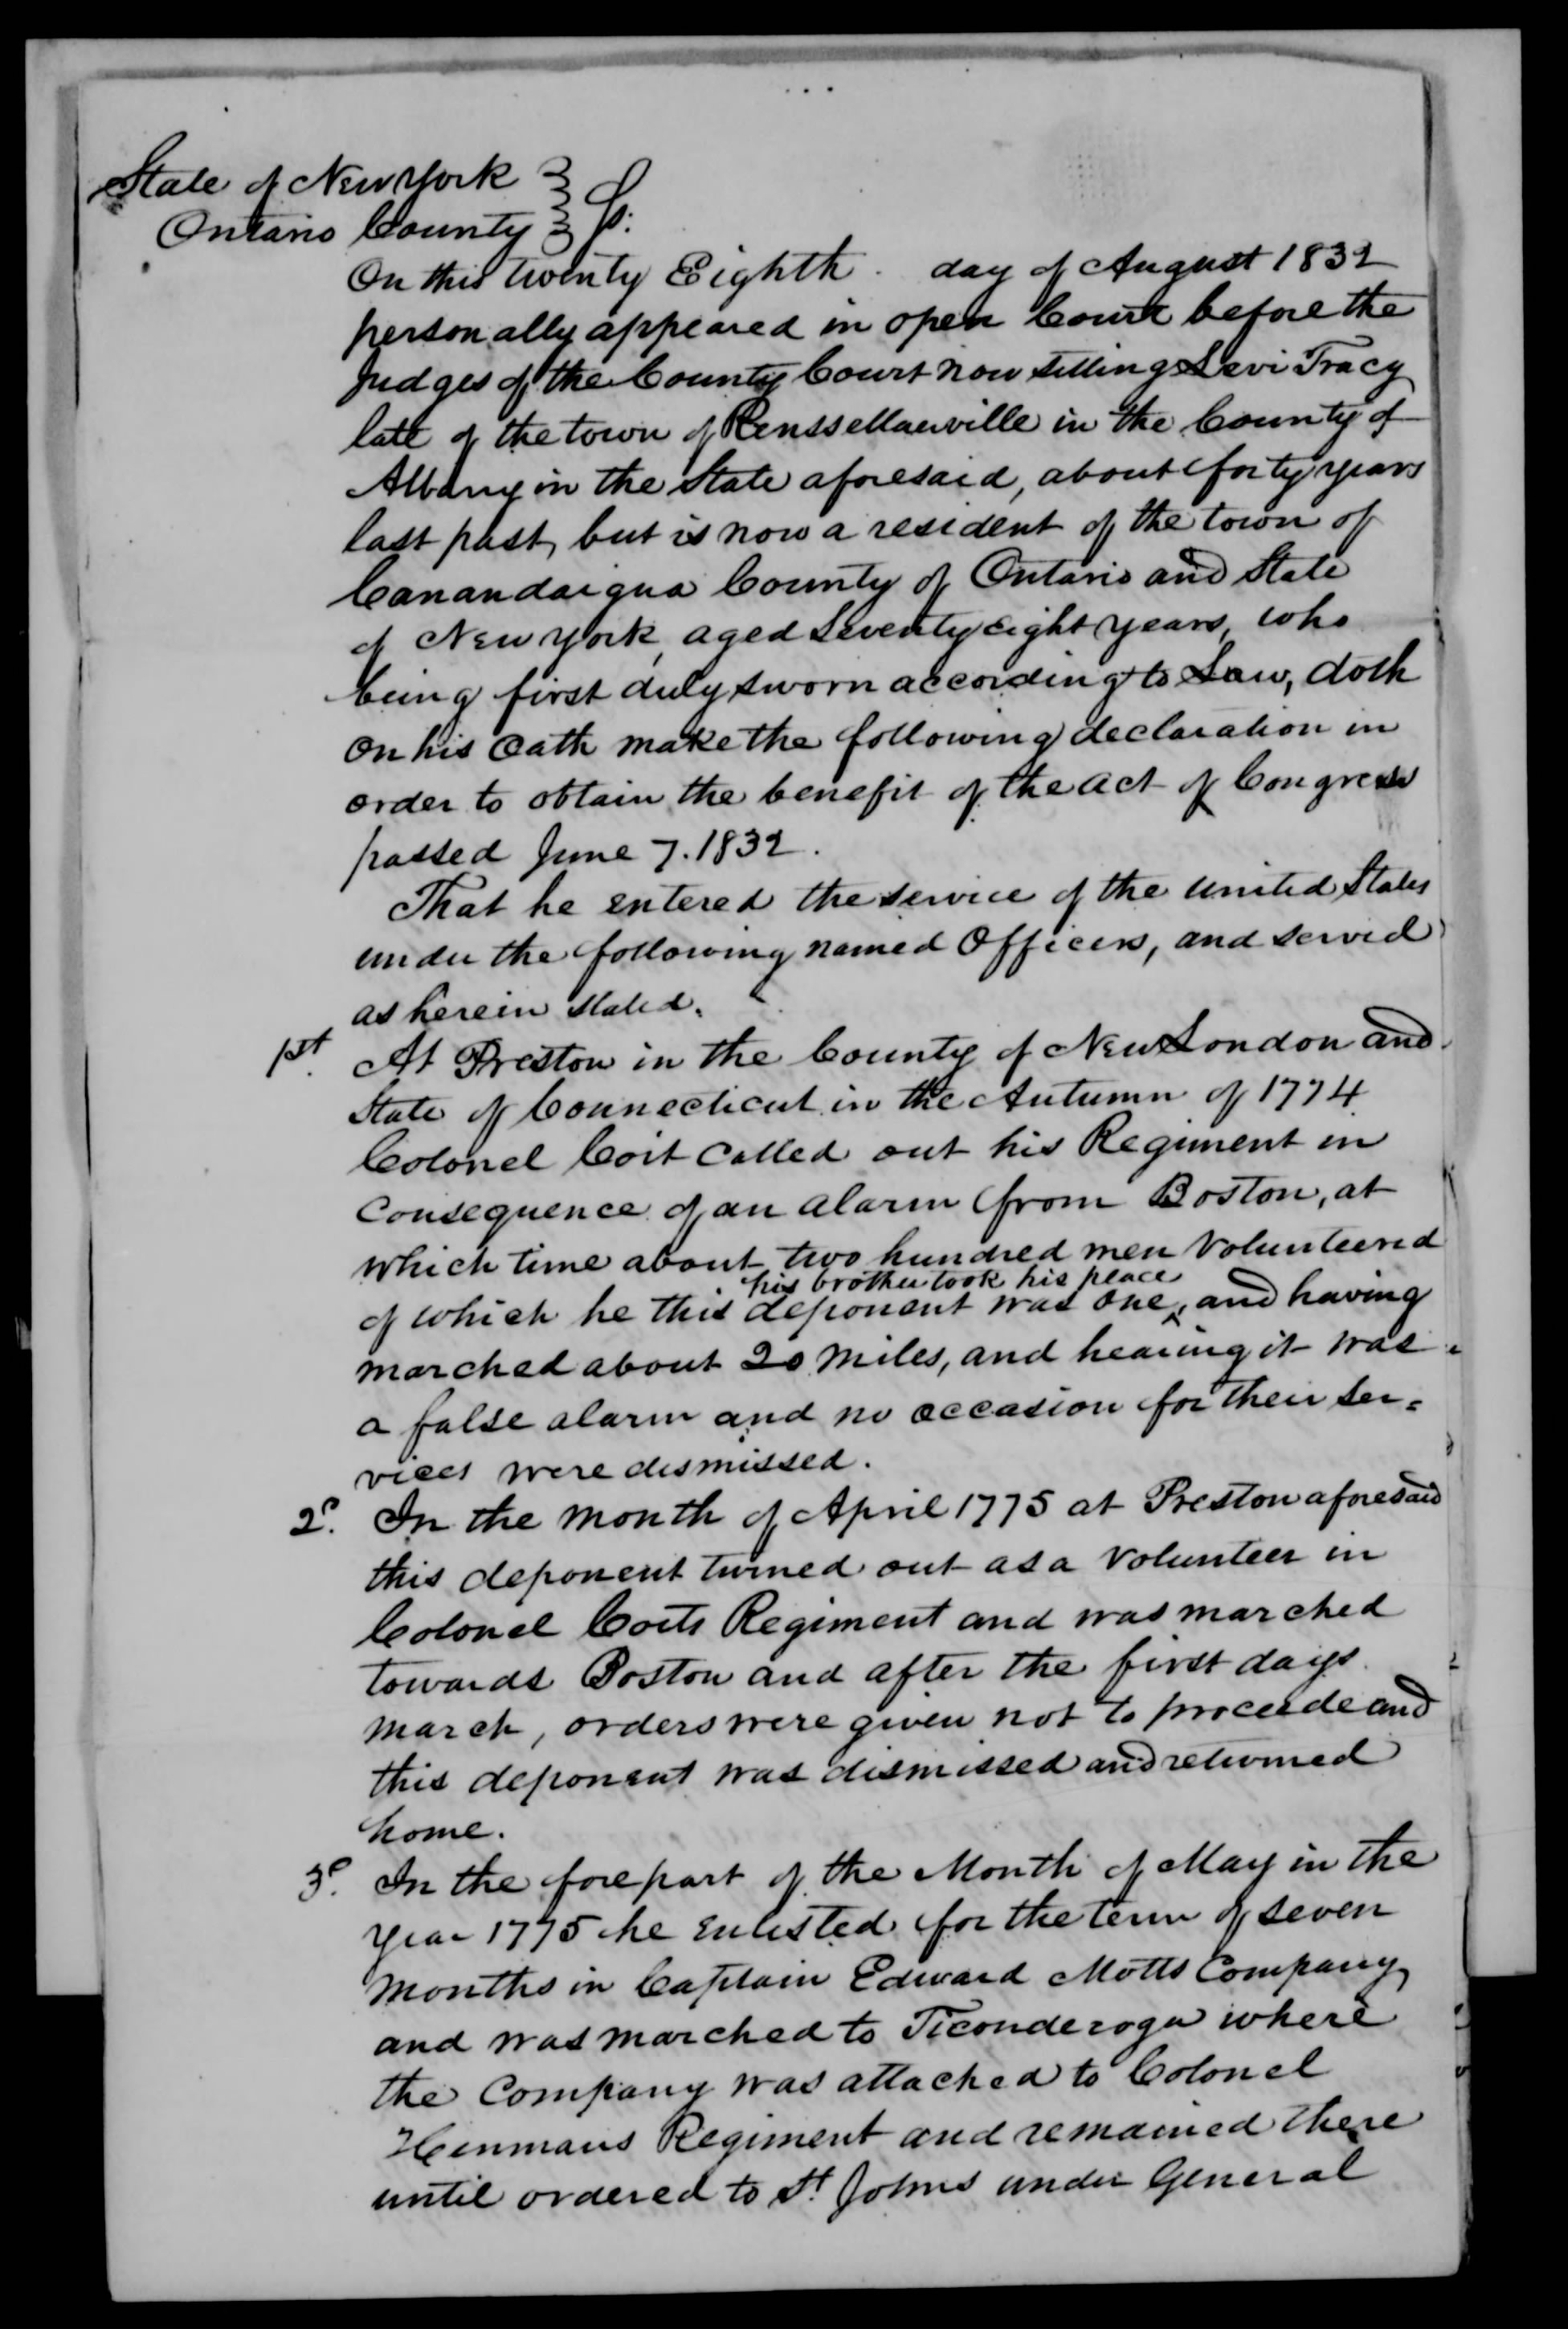 State of New York
Ontario County } Ss:
On this twenty Eighth day of August 1832
personally appeared in open Court before the
Judges of the County Court now sitting Levi Tracy
late of the town of Renssellaerville in the County of
Albany in the State aforesaid, about forty years
last past, but is now a resident of the town of
Canandaigua County of Ontario and State
of New York, aged Seventy eight years, who
being first duly sworn according to Law, doth
on his Oath make the following declaration in
order to obtain the benefit of the act of Congress
passed June 7. 1832.
That he entered the service of the United States
under the following named Officers, and served
as herein stated.
1st. At Preston in the County of New London and
State of Connecticut in the Autumn of 1774
Colonel Coit Called out his Regiment in
Consequence of an alarm from Boston, at
which time about two hundred men Volunteered
his brother took his place
of which he this deponent was one, ^ and having
marched about 20 miles, and hearing it was
a false alarm and no occasion for their ser=
vices were dismissed.
2d. In the month of April 1775 at Preston aforesaid
this deponent turned out as a Volunteer in
Colonel Coits Regiment and was marched
towards Boston and after the first days
march, orders were given not to proceede and
this deponent was dismissed and returned
home.
3d. In the forepart of the Month of May in the
year 1775 he enlisted for the term of seven
months in Captain Edward Motts Company,
and was marched to Ticonderoga where
the Company was attached to Colonel
Henmans Regiment and remained there
until ordered to St. Johns under General